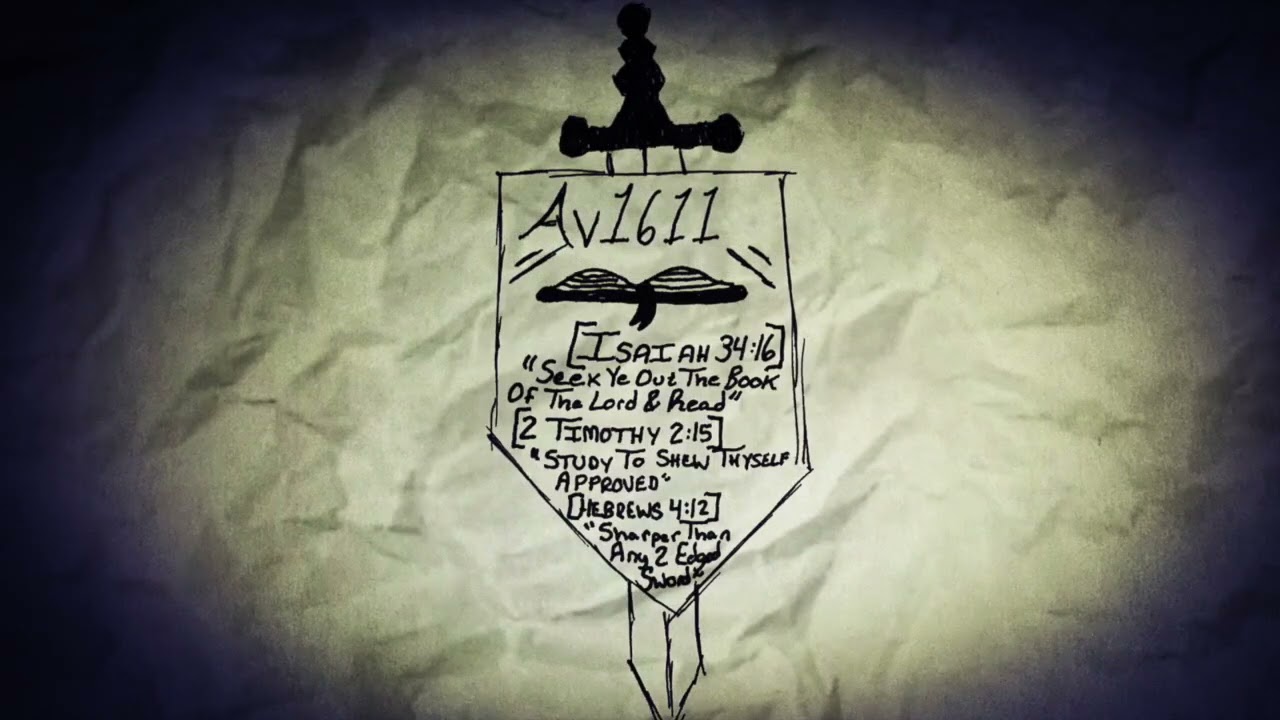 Av1611
[ISAIAH 34:16]
"Seek Ye Out The Book
Of The Lord & Read"
[2 TIMOTHY 2:15]
"STUDY TO SHEW THYSELF
APPROVED"
[HEBREWS 4:12]
"Sharper Than
Any 2 Edged
Sword"